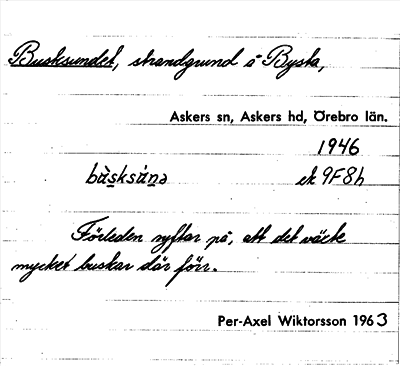 Busksundet, strandgrund å Bysta,
Askers sn, Askers hd, Örebro län.
1946
bùsksùnə ek 9F8h
Förleden syftar på, att det växte
mycket buskar där förr.
Per-Axel Wiktorsson 1963